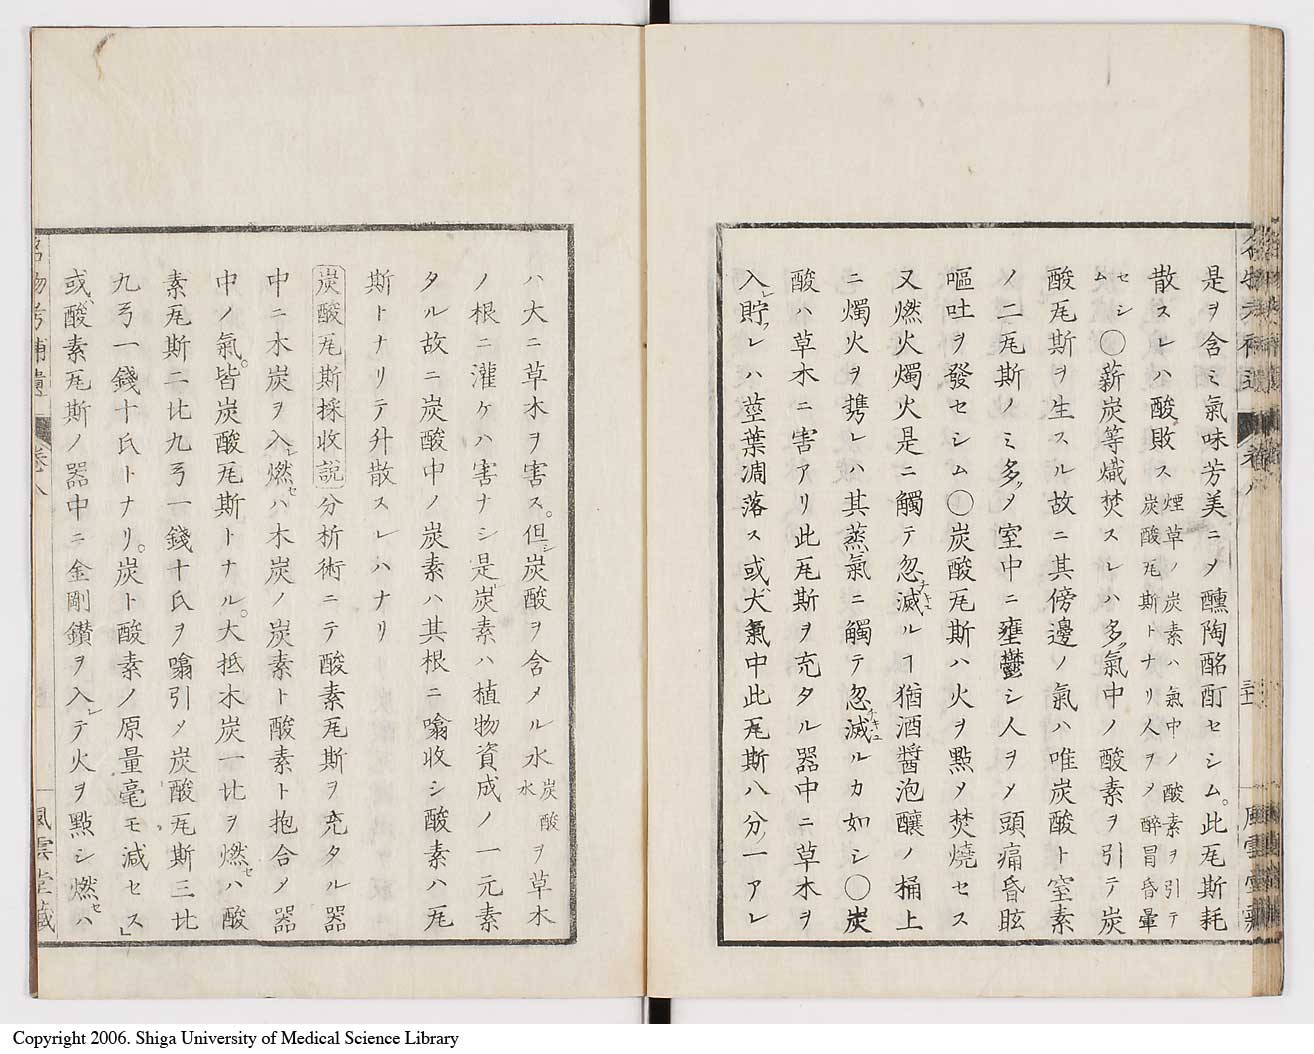 是ヲ含ミ氣味芳美ニメ醺陶酩酊セシム。此瓦斯耗
散スレハ酸敗ス煙草ノ炭素ハ氣中ノ酸素ヲ引テ炭酸瓦斯トナリ人ヲメ醉冒昏暈
セシム○薪炭等熾焚スレハ多ク氣中ノ酸素ヲ引テ炭
酸瓦斯ヲ生スル故ニ其傍邊ノ氣ハ唯炭酸ト窒素
ノ二瓦斯ノミ多メ室中ニ壅鬱シ人ヲメ頭痛昏眩
嘔吐ヲ發セシム○炭酸瓦斯ハ火ヲ點メ焚燒セス
又燃火燭火是ニ觸テ忽滅ルヿ猶酒醬泡釀ノ桶上
ニ燭火ヲ携レハ其蒸氣ニ觸テ忽滅ルカ如シ○炭
酸ハ草木ニ害アリ此瓦斯ヲ充タル器中ニ草木ヲ
入レ貯フレハ莖葉凋落ス或ハ大氣中此瓦斯八分ノ一アレ
ハ大ニ草木ヲ害ス。但シ炭酸ヲ含メル水炭酸水ヲ草木
ノ根ニ灌ケハ害ナシ是レ炭素ハ植物資成ノ一元素
タル故ニ炭酸中ノ炭素ハ其根ニ噏收シ酸素ハ瓦
斯トナリテ升散スレハナリ
炭酸瓦斯採收說 分析術ニテ酸素瓦斯ヲ充タル器
中ニ木炭ヲ入レ燃セハ木炭ノ炭素ト酸素ト抱合メ器
中ノ氣。皆炭酸瓦斯トナル。大抵木炭一比ヲ燃セハ酸
素瓦斯二比九弓一錢十氏ヲ噏引メ炭酸瓦斯三比
九弓一錢十氏トナリ。炭ト酸素ノ原量毫モ減セス」
或ハ酸素瓦斯ノ器中ニ金剛鑽ヲ入レテ火ヲ點シ燃セハ
名物考補遺
卷八
風雲堂藏
Copyright 2006. Shiga University of Medical Science Library